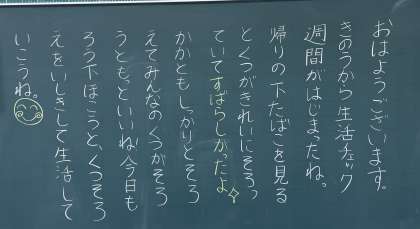 おはようございます。
きのうから生活チェック
週間がはじまったね。
帰りの下たばこを見る
とくつがきれいにそろっ
ていてすばらしかったよ
かかともしっかりとそろ
えてみんなのくつがそろ
うともっといいね!今日も
ろう下ほこうと、くつそろ
えをいしきして生活して
いこうね。